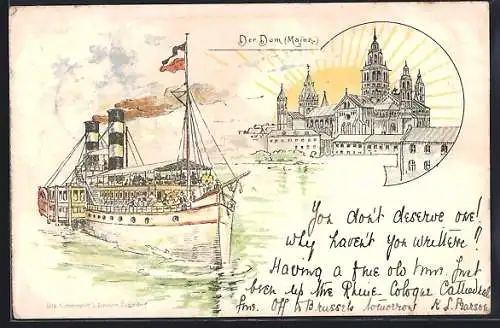 Der Dom (Mainz.)
You don't deserve one!
Why haven't you written?
Having a fine old time. Just
been up the Rhine Cologne Cathedral
Off to Brussels tomorrow K S. Parson